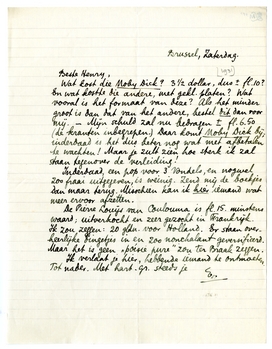 Brussel, Zaterdag.
Beste Henry,
Wat kost die Moby Dick? 3½ dollar, dus ± fl. 10?
En wat kostte die andere, met gekl. platen? Wat
vooral is het formaat van deze? Als het minder
groot is dan dat van het andere, bestel dit dan voor
mij. — Mijn schuld zal nu bedragen f. 6.50
(de kranten inbegrepen). Daar komt Moby Dick bij,
inderdaad is het dus beter nog wat met afbetalen
te wachten! Maar je zult zien hoe sterk ik zal
staan tegenover de verleiding!
Inderdaad, een pop voor 3 Vondels, en nogwel
200 fraai uitgegeven, is weinig. Zend mij de boekjes
dan maar terug. Misschien kan ik hier iemand wat
meer ervoor afzetten.
De Pierre Louÿs van Coulouma is fl. 15. minstens
waard; uitverkocht en zeer gezocht in Frankrijk.
Ik zou zeggen: 20 gldn. voor Holland. Er staan over-
heerlijke dingetjes in en zoo nonchalant geversifieerd.
Maar het is geen "poésie pure" zou ter Braak zeggen.
Ik verlaat je hier, hebbende iemand te ontmoeten.
Tot nader. Met hart. gr. steeds je
E.